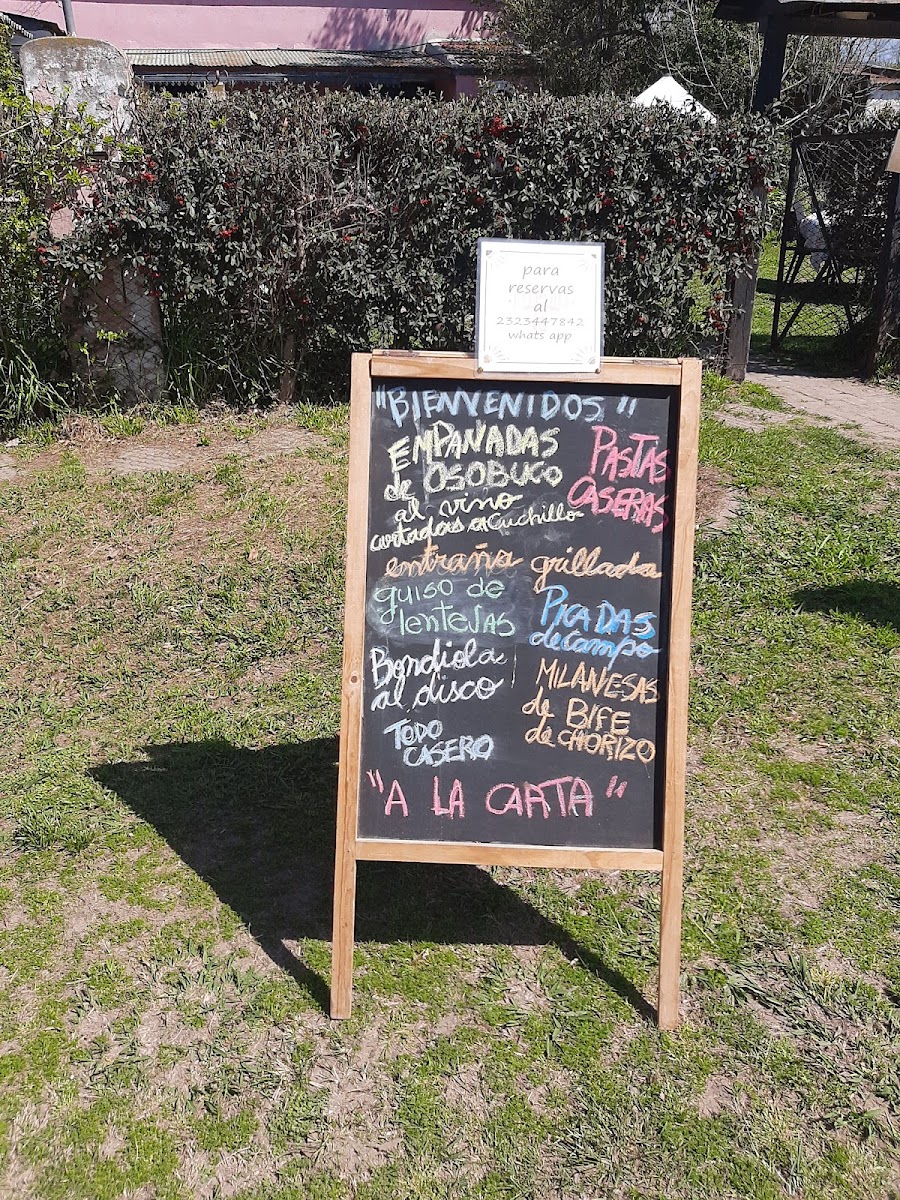 para
reservas
al
2323447842
whats app
"BIENVENIDOS"
EMPANADAS
de OSOBUCO
al vino
cortadas a cuchillo
PASTAS
CASERAS
entraña grillada
guiso de
lentejas
PICADAS
de campo
Bondiola
al disco
MILANESAS
de BIFE
de CHORIZO
TODO
CASERO
"A LA CARTA"